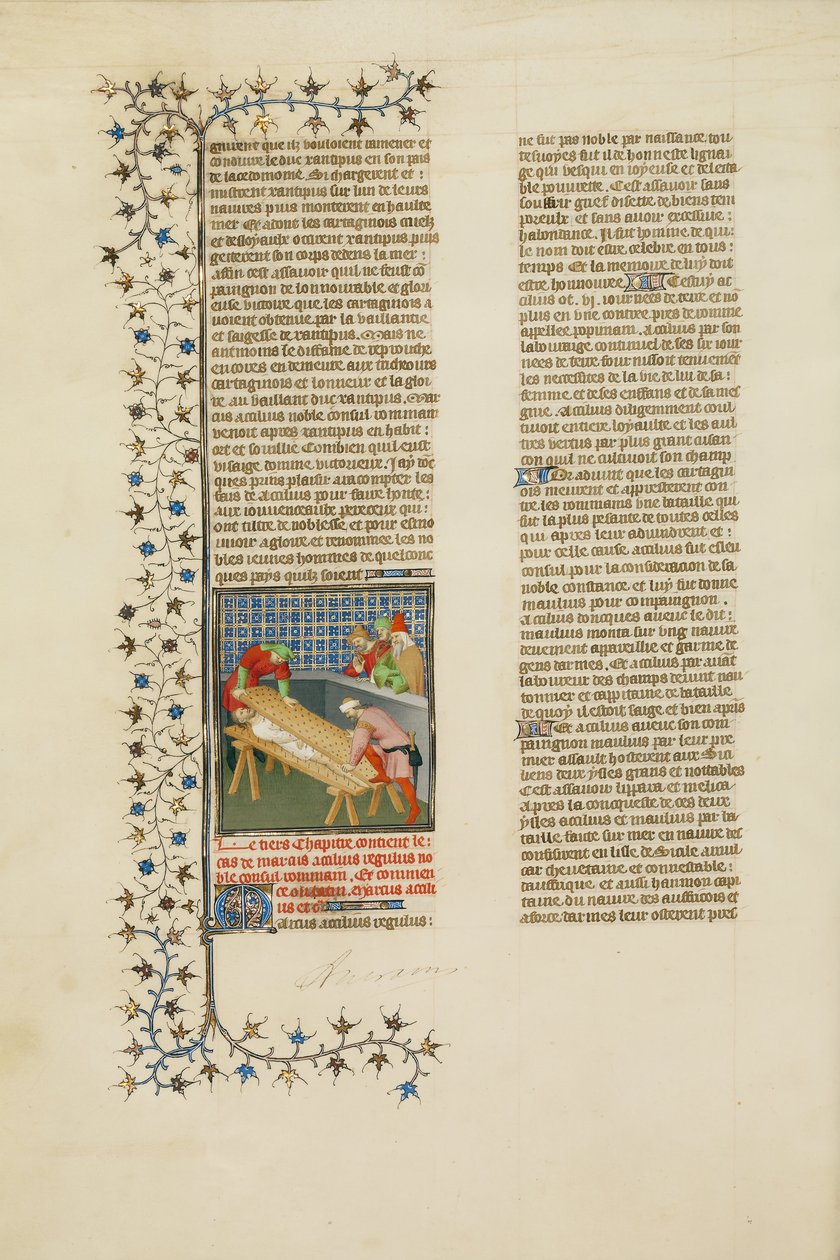 gnirent que ilz vouloient ramener et
conduire le duc xantipus en son pais
de lacedomonie. Si chargerent et :
mistrent xantipus sur lun de leurs
navires puis monterent en haulte
mer Et adont les cartaginois cruelz
et desloyaulx occirent xantipus puis
getterent son corps dedens la mer :
affin cest assavoir quil ne feust cō
paignon de lonnourable et glori
euse victoire que les cartaginois a
voient obtenue par la vaillantie
et saigesse de xantipus. Mais ne
antmoins le diffame de reprouche
encores en demeure aux tricheours
cartaginois et lonneur et la gloi
re au vaillant duc xantipus. Mar
cus acilius noble consul rommain
venoit apres xantipus en habit :
ort et souillie Combien quil eust
visaige domme victorieux. Jay doc
ques prins plaisir a racompter les
fais de acilius pour faire honte :
aux jouvenceaulx pereceux qui :
ont tiltre de noblesse et pour esmo
uvoir a gloire et renommee les no
bles jeunes hommes de quelconc
ques pays quilz soient
Le tiers Chapitre contient le :
cas de marcus acilius regulus no
ble consul rommain. Et commen
ce ou latin. Marcus acili
us etc.
Marcus acilius regulus :
ne fut pas noble par naissance tou
tesvoyes fut il de honneste lignai
ge qui vesqui en joyeuse et delecta
ble pouvrette. Cest assavoir sans
souffrir grief disette de biens tem
poreulx et sans avoir excessive :
habondance. Il fut homme de qui :
le nom doit estre celebre en tous :
temps Et la memoire de luy doit
estre honnouree. Cestuy ac
cilius ot .vj. journees de terre et nō
plus en une contree pres de romme
appellee popiniam. Acilius par son
labouraige continuel de ses six jour
nees de terre fournissoit tenuement
les necessites de la vie de lui de sa :
femme et de ses enffans et de sa mes
gnie. Acilius diligemment coul
tivoit entiere loyaulte et les aul
tres vertus par plus grant cusan
con quil ne cultivoit son champ
Or advint que les cartagin
ois meurent et appresterent con
tre les rommains une bataille qui
fut la plus pesante de toutes celles
qui apres leur advindrent et :
pour celle cause acilius fut esleu
consul pour la consideration de sa
noble constance et luy fut donne
manlius pour compaignon.
Acilius doncques avecc le dit :
manlius monta sur ung navire
deuement appareillie et garnie de
gens darmes. Et acilius par avāt
laboureur des champs devint nau
tonnier et cappitaine de bataille
de quoy il estoit saige et bien apris
Et acilius avecc son com
paignon manlius par leur pre
mier assault hosterent aux Sici
liens deux ysles grans et nottables
Cest assavoir lippara et melica
Apres la conqueste de ces deux
ysles acilius et manlius par ba
taille faicte sur mer en navire des
confisirent en lisle de Sicile amul
car chevetaine et connestable :
dauffrique et aussi hannon capi
taine du navire des auffricois et
a force darmes leur osterent pres